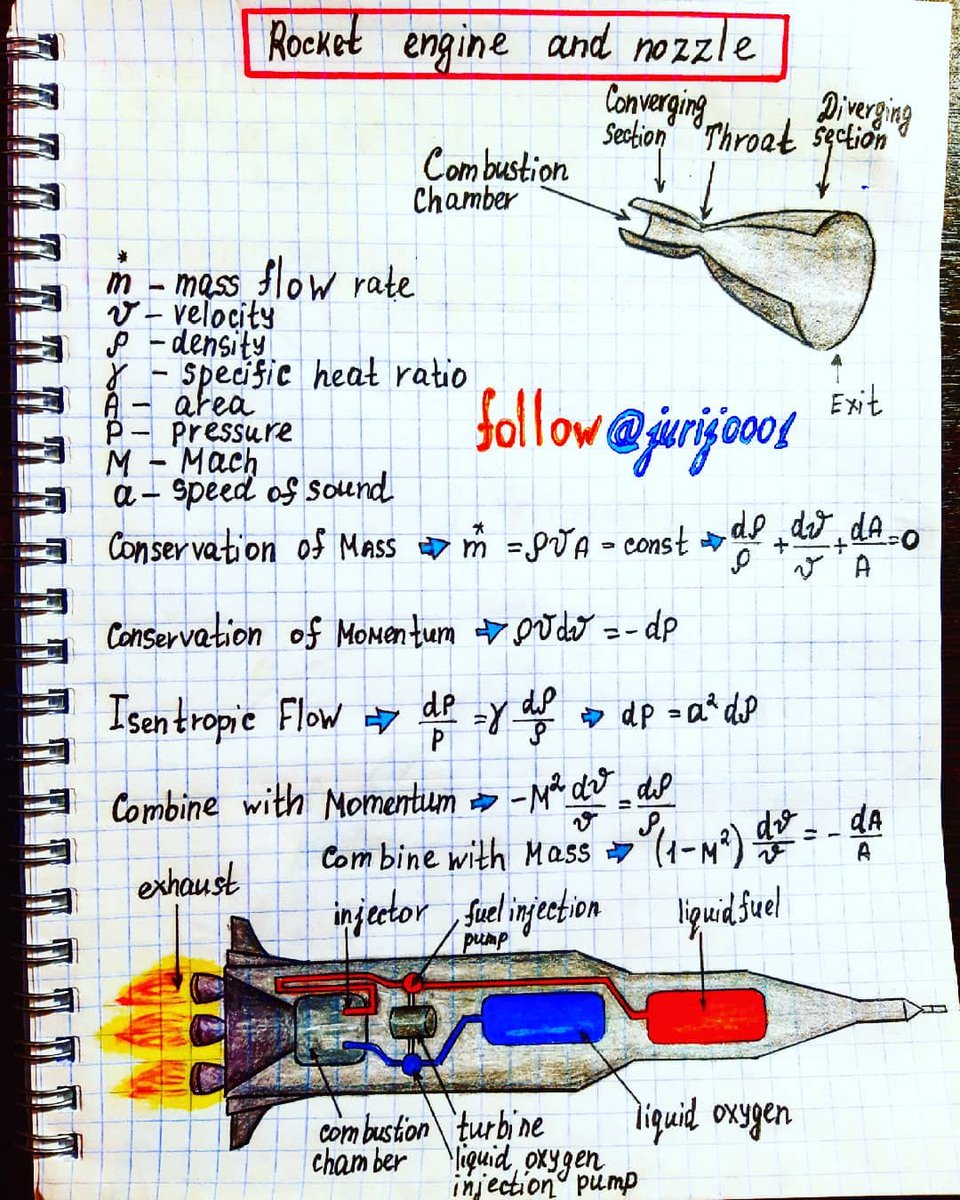 Rocket engine and nozzle
Converging
section
Throat
Diverging
section
Combustion
Chamber
Exit
ṁ - mass flow rate
v - velocity
ρ - density
γ - specific heat ratio
A - area
P - pressure
M - Mach
a - speed of sound
follow @jurij0001
Conservation of Mass → ṁ = ρvA - const → dρ/ρ + dv/v + dA/A = 0
Conservation of Momentum → ρvdv = - dP
Isentropic Flow → dP/P = γ dρ/ρ → dP = a² dρ
Combine with Momentum → -M² dv/v = dρ/ρ
Combine with Mass → (1-M²) dv/v = - dA/A
exhaust
injector
fuel injection
pump
liquid fuel
combustion
chamber
turbine
liquid oxygen
injection pump
liquid oxygen